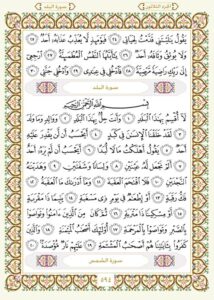 الجزء الثلاثون سورة البلد
يَقُولُ يَٰلَيْتَنِى قَدَّمْتُ لِحَيَاتِى ٢٤ فَيَوْمَئِذٍ لَّا يُعَذِّبُ عَذَابَهُۥٓ أَحَدٌ ٢٥
وَلَا يُوثِقُ وَثَاقَهُۥٓ أَحَدٌ ٢٦ يَٰٓأَيَّتُهَا ٱلنَّفْسُ ٱلْمُطْمَئِنَّةُ ٢٧ ٱرْجِعِىٓ
إِلَىٰ رَبِّكِ رَاضِيَةً مَّرْضِيَّةً ٢٨ فَٱدْخُلِى فِى عِبَٰدِى ٢٩ وَٱدْخُلِى جَنَّتِى ٣٠
سورة البلد
بِسْمِ ٱللَّهِ ٱلرَّحْمَٰنِ ٱلرَّحِيمِ
لَآ أُقْسِمُ بِهَٰذَا ٱلْبَلَدِ ١ وَأَنتَ حِلٌّۢ بِهَٰذَا ٱلْبَلَدِ ٢ وَوَالِدٍ وَمَا وَلَدَ
٣ لَقَدْ خَلَقْنَا ٱلْإِنسَٰنَ فِى كَبَدٍ ٤ أَيَحْسَبُ أَن لَّن يَقْدِرَ عَلَيْهِ
أَحَدٌ ٥ يَقُولُ أَهْلَكْتُ مَالًا لُّبَدًا ٦ أَيَحْسَبُ أَن لَّمْ يَرَهُۥٓ أَحَدٌ
٧ أَلَمْ نَجْعَل لَّهُۥ عَيْنَيْنِ ٨ وَلِسَانًا وَشَفَتَيْنِ ٩ وَهَدَيْنَٰهُ
ٱلنَّجْدَيْنِ ١٠ فَلَا ٱقْتَحَمَ ٱلْعَقَبَةَ ١١ وَمَآ أَدْرَىٰكَ مَا ٱلْعَقَبَةُ ١٢
فَكُّ رَقَبَةٍ ١٣ أَوْ إِطْعَٰمٌ فِى يَوْمٍ ذِى مَسْغَبَةٍ ١٤ يَتِيمًا ذَا مَقْرَبَةٍ ١٥
أَوْ مِسْكِينًا ذَا مَتْرَبَةٍ ١٦ ثُمَّ كَانَ مِنَ ٱلَّذِينَ ءَامَنُوا۟ وَتَوَاصَوْا۟
بِٱلصَّبْرِ وَتَوَاصَوْا۟ بِٱلْمَرْحَمَةِ ١٧ أُو۟لَٰٓئِكَ أَصْحَٰبُ ٱلْمَيْمَنَةِ ١٨ وَٱلَّذِينَ
كَفَرُوا۟ بِـَٔايَٰتِنَا هُمْ أَصْحَٰبُ ٱلْمَشْـَٔمَةِ ١٩ عَلَيْهِمْ نَارٌ مُّؤْصَدَةٌۢ ٢٠
سورة الشمس
٥٩٤